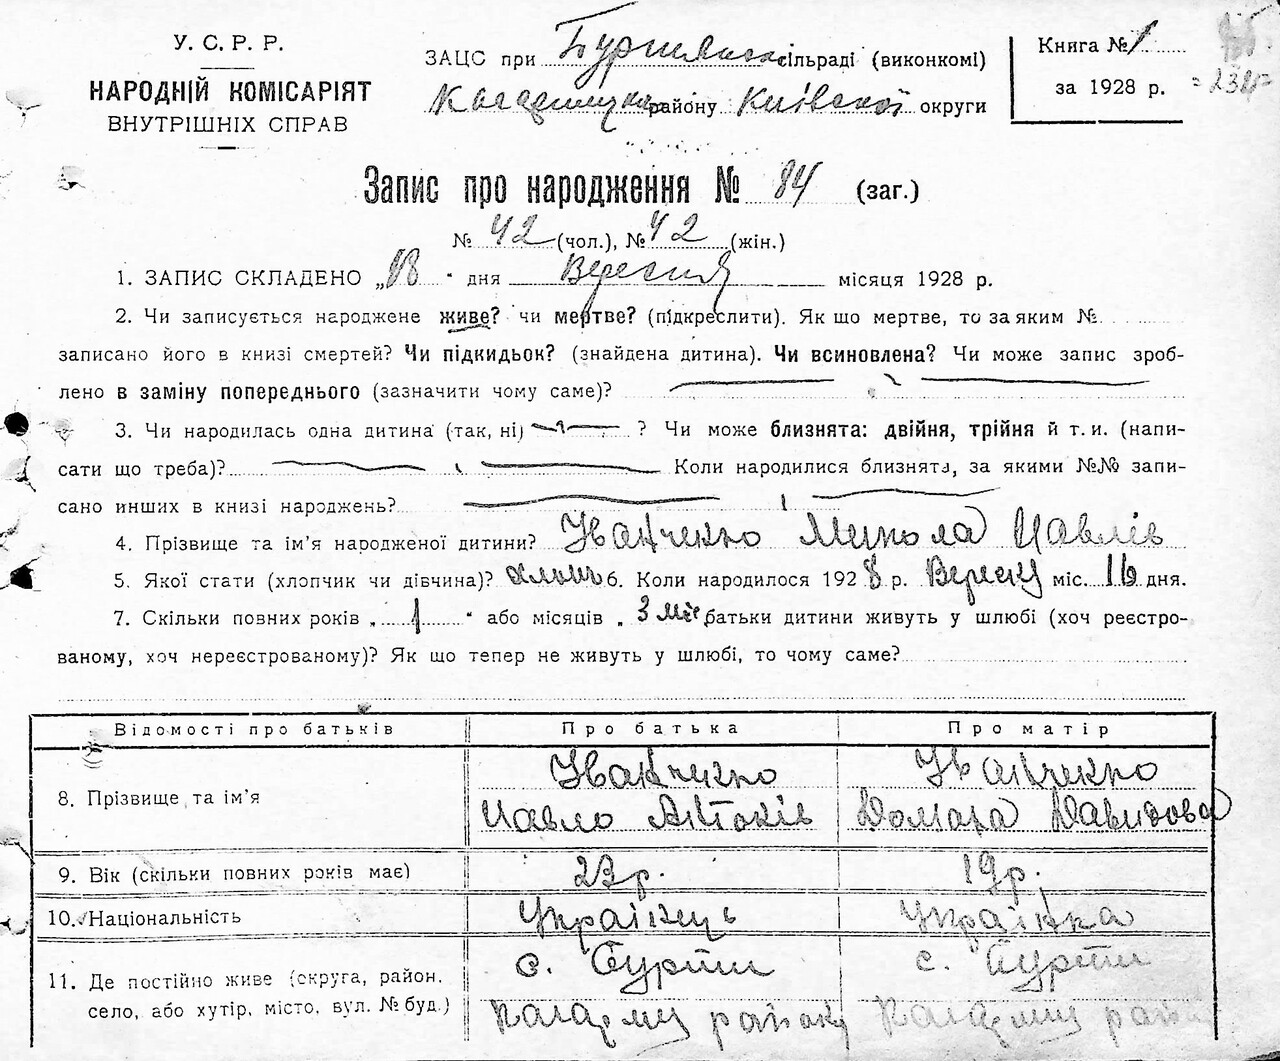 У. С. Р. Р.
НАРОДНІЙ КОМІСАРІЯТ
ВНУТРІШНІХ СПРАВ
ЗАЦС при сільраді (виконкомі)
району Київської округи
Книга № 1
за 1928 р.
Запис про народження № 84 (заг.)
№ 42 (чол.), № 42 (жін.)
1. ЗАПИС СКЛАДЕНО „18" дня Вересня місяця 1928 р.
2. Чи записується народжене живе? чи мертве? (підкреслити). Як що мертве, то за яким №
записано його в книзі смертей? Чи підкидьок? (знайдена дитина). Чи всиновлена? Чи може запис зроб-
лено в заміну попереднього (зазначити чому саме)?
3. Чи народилась одна дитина (так, ні) ? Чи може близнята: двійня, трійня й т. и. (напи-
сати що треба)? Коли народилися близнята, за якими №№ запи-
сано инших в книзі народжень?
4. Прізвище та ім'я народженої дитини? Іванченко Микола Павлів
5. Якої статі (хлопчик чи дівчина)? хлопч 6. Коли народилося 1928 р. Вересну міс. 16 дня.
7. Скільки повних років „ 1 " або місяців „ 3 міс батьки дитини живуть у шлюбі (хоч реєстро-
ваному, хоч нереєстрованому)? Як що тепер не живуть у шлюбі, то чому саме?
Відомості про батьків Про батька Про матір
8. Прізвище та ім'я Іванченко Іванченко
Павло Антонів Домара Давидова
9. Вік (скільки повних років має) 23 р. 19 р.
10. Національність Українець Українка
11. Де постійно живе (округа, район, с. Бурти с. Бурти
село, або хутір, місто, вул. № буд.) району